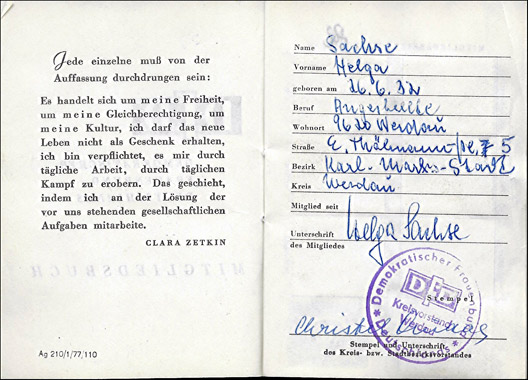 Jede einzelne muß von der
Auffassung durchdrungen sein:
Es handelt sich um meine Freiheit,
um meine Gleichberechtigung, um
meine Kultur, ich darf das neue
Leben nicht als Geschenk erhalten,
ich bin verpflichtet, es mir durch
tägliche Arbeit, durch täglichen
Kampf zu erobern. Das geschieht,
indem ich an der Lösung der
vor uns stehenden gesellschaftlichen
Aufgaben mitarbeite.
CLARA ZETKIN
MITGLIEDSBUCH
Ag 210/1/77/110
Name Sachse
Vorname Helga
geboren am 26.6.32
Beruf Angestellte
Wohnort 9620 Werdau
Straße E. Thälmann 5
Bezirk Karl-Marx-Stadt
Kreis Werdau
Mitglied seit
Unterschrift Helga Sachse
des Mitgliedes
Demokratischer Frauenbund Deutschlands
DFD
Kreisvorstand
Werdau
Stempel
Christel
Stempel und Unterschrift
des Kreis- bzw. Stadtbezirksvorstandes